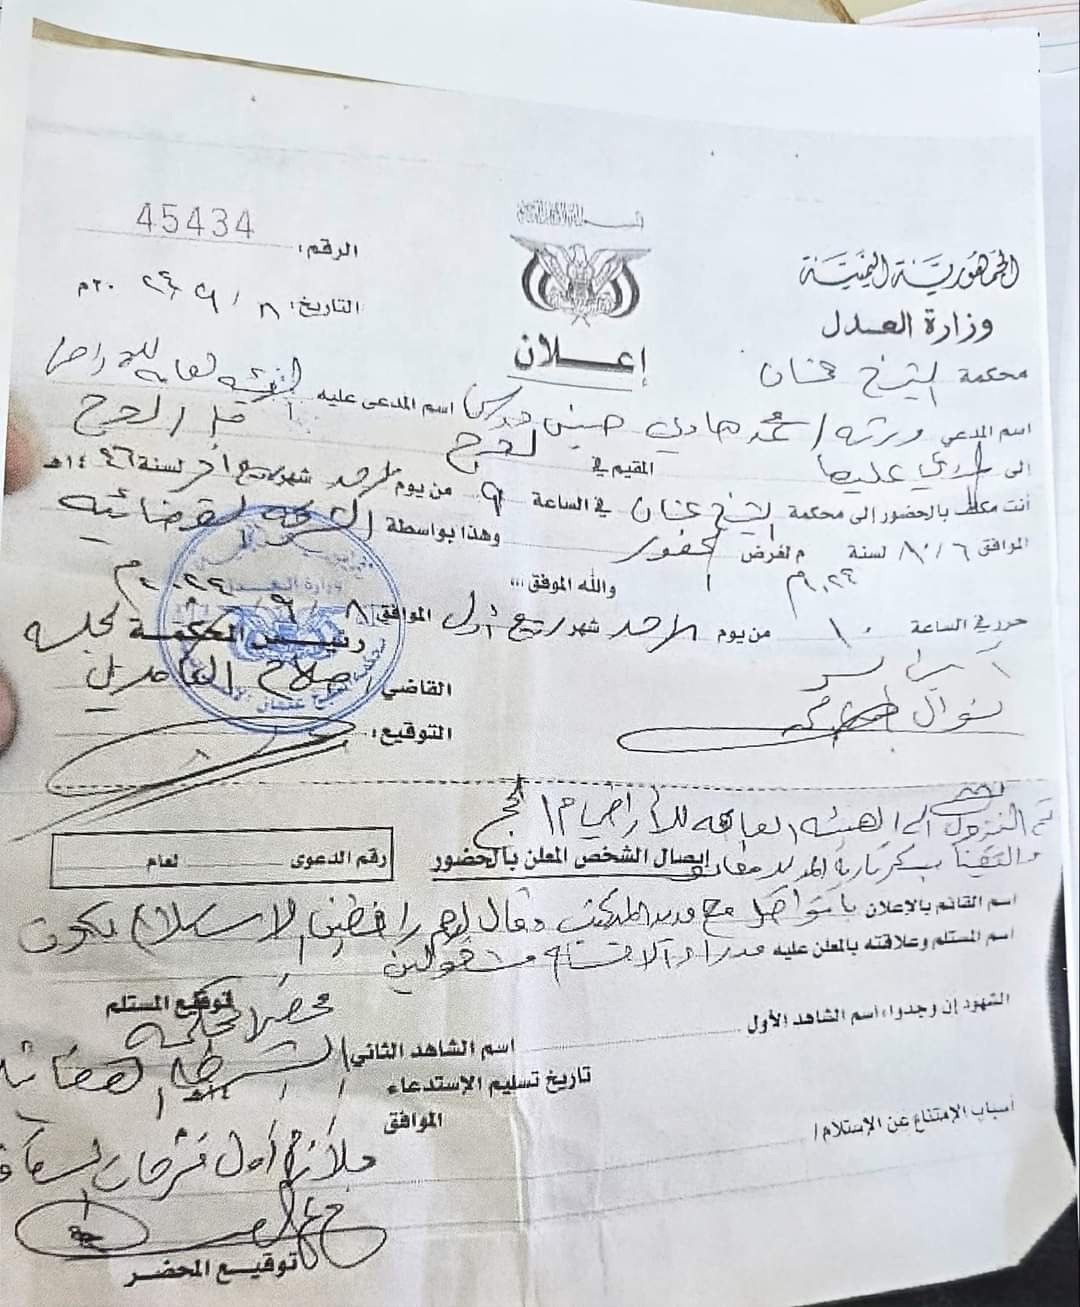 الجمهورية اليمنية
وزارة العدل
محكمة الشيخ عثمان
الرقم: 45434
التاريخ: ٨ / ٩ / ٢٠٢٤م
إعلان
اسم المدعي ورثة / محمد هادي حسين اسم المدعى عليه الهيئة العامة للأراضي
إلى المدعي عليها المقيم في لحج م / لحج
أنت مكلف بالحضور إلى محكمة الشيخ عثمان في الساعة ٩ من يوم الاحد شهر ربيع آخر لسنة ١٤٤٦هـ
الموافق ٦ / ١٠ لسنة ٢٠٢٤م لغرض الحضور وهذا بواسطة الشرطة القضائية
والله الموفق ...
حرر في الساعة ١٠ من يوم الاحد شهر ربيع أول الموافق ٨ / ٩ / ٢٠٢٤م
رئيس المحكمة
القاضي / صلاح
التوقيع:
أمين سر
نوال
تم النزول إلى الهيئة العامة للأراضي م / لحج
والتقينا بسكرتارية المدير
إيصال الشخص المعلن بالحضور
رقم الدعوى لعام
اسم القائم بالإعلان
بالتواصل مع مدير المكتب وقال لهم رافضين الاستلام بكون
اسم المستلم وعلاقته بالمعلن عليه مدراء الاقسام مشغولين
توقيع المستلم
محضر المحكمة
الشهود إن وجدوا، اسم الشاهد الأول
اسم الشاهد الثاني
الشرطة القضائية
تاريخ تسليم الإستدعاء ١٤هـ
الموافق
أسباب الإمتناع عن الإستلام /
ملازم أول
توقيع المحضر